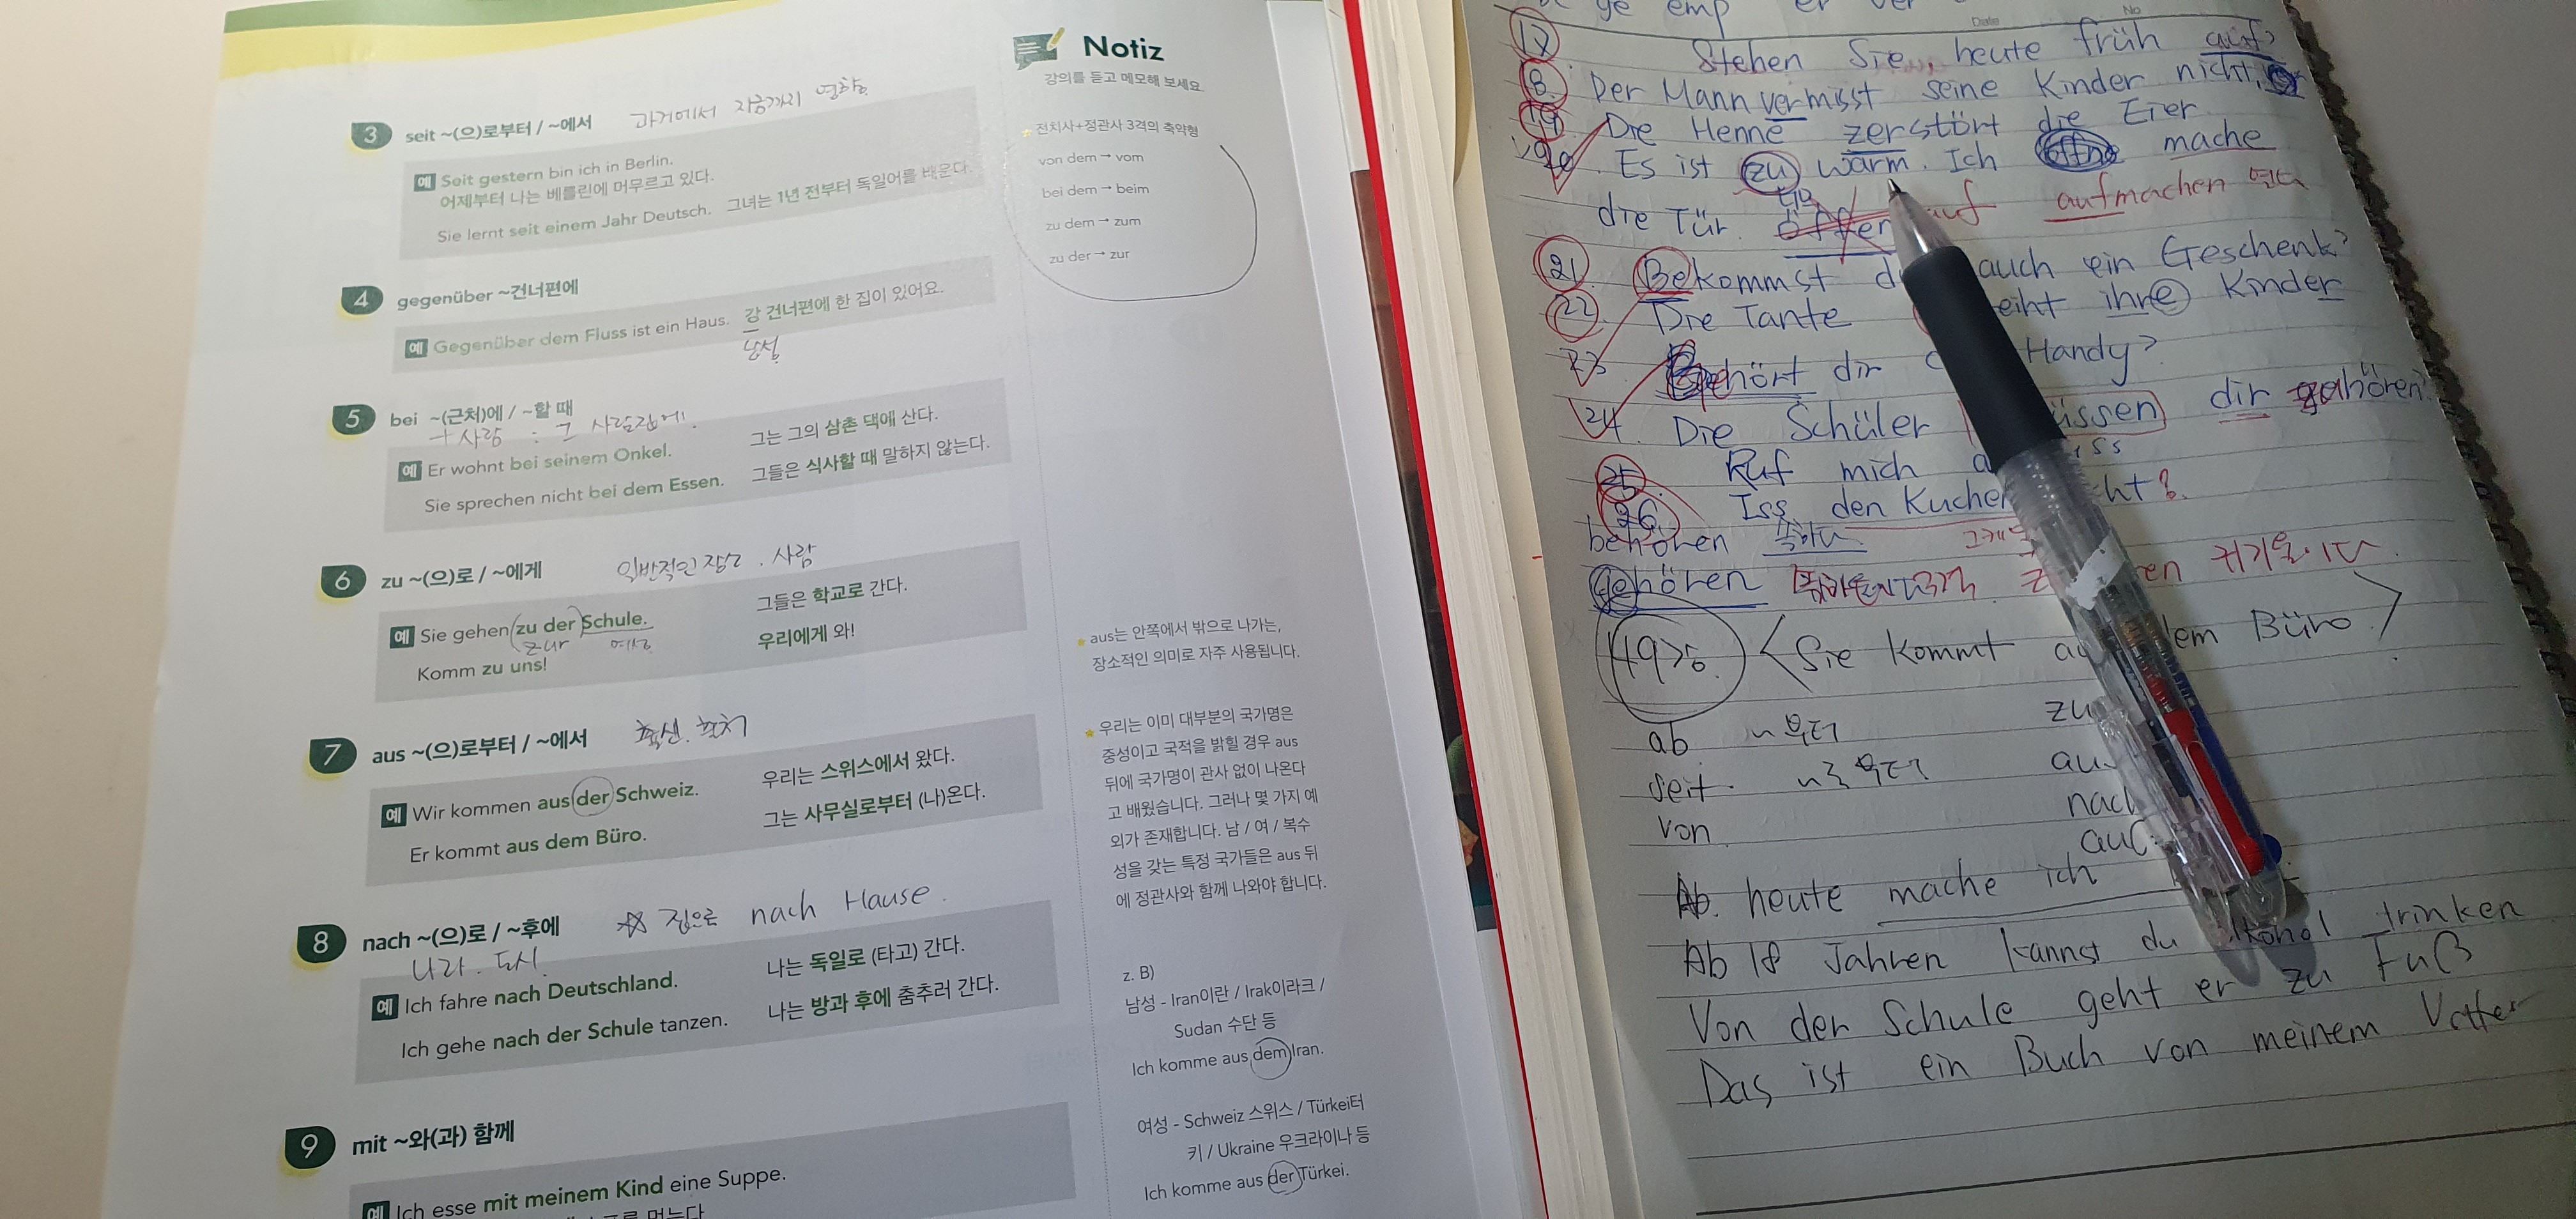 Notiz
강의를 듣고 메모해 보세요.
3 seit ~(으)로부터 / ~에서 과거에서 지금까지
예 Seit gestern bin ich in Berlin.
어제부터 나는 베를린에 머무르고 있다.
Sie lernt seit einem Jahr Deutsch. 그녀는 1년 전부터 독일어를 배운다.
4 gegenüber ~건너편에
예 Gegenüber dem Fluss ist ein Haus. 강 건너편에 한 집이 있어요.
남성
5 bei ~(근처)에 / ~할 때
+ 사람 : 그 사람집에.
예 Er wohnt bei seinem Onkel. 그는 그의 삼촌 댁에 산다.
Sie sprechen nicht bei dem Essen. 그들은 식사할 때 말하지 않는다.
6 zu ~(으)로 / ~에게 일반적인 장소 . 사람
예 Sie gehen zu der Schule. 그들은 학교로 간다.
zur 여성
Komm zu uns! 우리에게 와!
7 aus ~(으)로부터 / ~에서 출신.
예 Wir kommen aus der Schweiz. 우리는 스위스에서 왔다.
Er kommt aus dem Büro. 그는 사무실로부터 (나)온다.
8 nach ~(으)로 / ~후에 ☆ 집으로 nach Hause.
나라 . 도시.
예 Ich fahre nach Deutschland. 나는 독일로 (타고) 간다.
Ich gehe nach der Schule tanzen. 나는 방과 후에 춤추러 간다.
9 mit ~와(과) 함께
예 Ich esse mit meinem Kind eine Suppe.
전치사+정관사 3격의 축약형
von dem → vom
bei dem → beim
zu dem → zum
zu der → zur
aus는 안쪽에서 밖으로 나가는,
장소적인 의미로 자주 사용됩니다.
우리는 이미 대부분의 국가명은
중성이고 국적을 밝힐 경우 aus
뒤에 국가명이 관사 없이 나온다
고 배웠습니다. 그러나 몇 가지 예
외가 존재합니다. 남 / 여 / 복수
성을 갖는 특정 국가들은 aus 뒤
에 정관사와 함께 나와야 합니다.
z. B)
남성 - Iran이란 / Irak이라크 /
Sudan 수단 등
Ich komme aus dem Iran.
여성 - Schweiz 스위스 / Türkei터
키 / Ukraine 우크라이나 등
Ich komme aus der Türkei.
ge emp er ver
Date No
17 Stehen Sie, heute früh auf?
18. Der Mann vermisst seine Kinder nicht.
19 Die Henne zerstört die Eier
20. Es ist zu warm. Ich mache
die Tür. auf aufmachen 연다
21. Bekommst auch ein Geschenk?
22. Die Tante eiht ihre Kinder
23 Gehört dir Handy?
24. Die Schüler üssen dir gehören?
25. Ruf mich
26. Iss den Kuchen cht?
behören 속하다
Gehören
49강 < Sie kommt dem Büro >
ab ~부터 zu
seit ~로부터
von nach
Ab heute mache ich
Ab 18 Jahren kannst du trinken
Von der Schule geht er zu Fuß
Das ist ein Buch von meinem Vatter